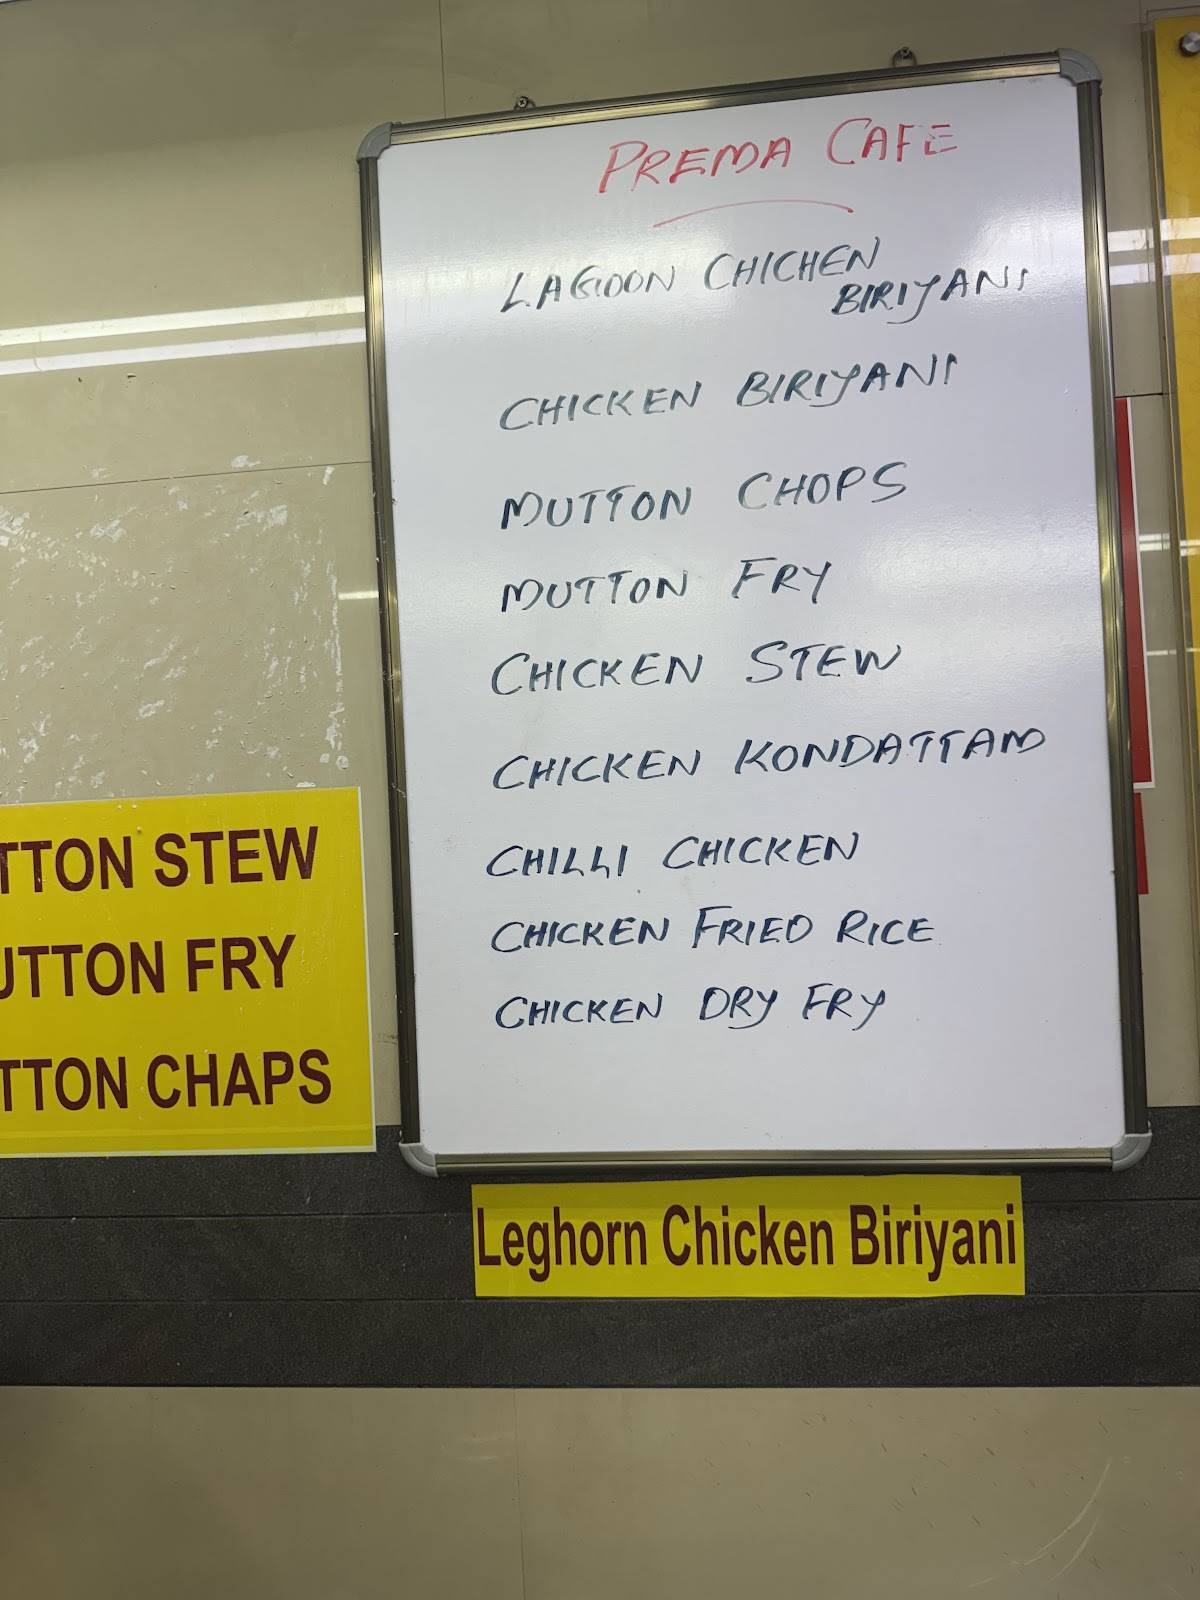 PREMA CAFE
LAGOON CHICHEN
BIRIYANI
CHICKEN BIRIYANI
MUTTON CHOPS
MUTTON FRY
CHICKEN STEW
CHICKEN KONDATTAM
CHILLI CHICKEN
CHICKEN FRIED RICE
CHICKEN DRY FRY
TTON STEW
UTTON FRY
TTON CHAPS
Leghorn Chicken Biriyani